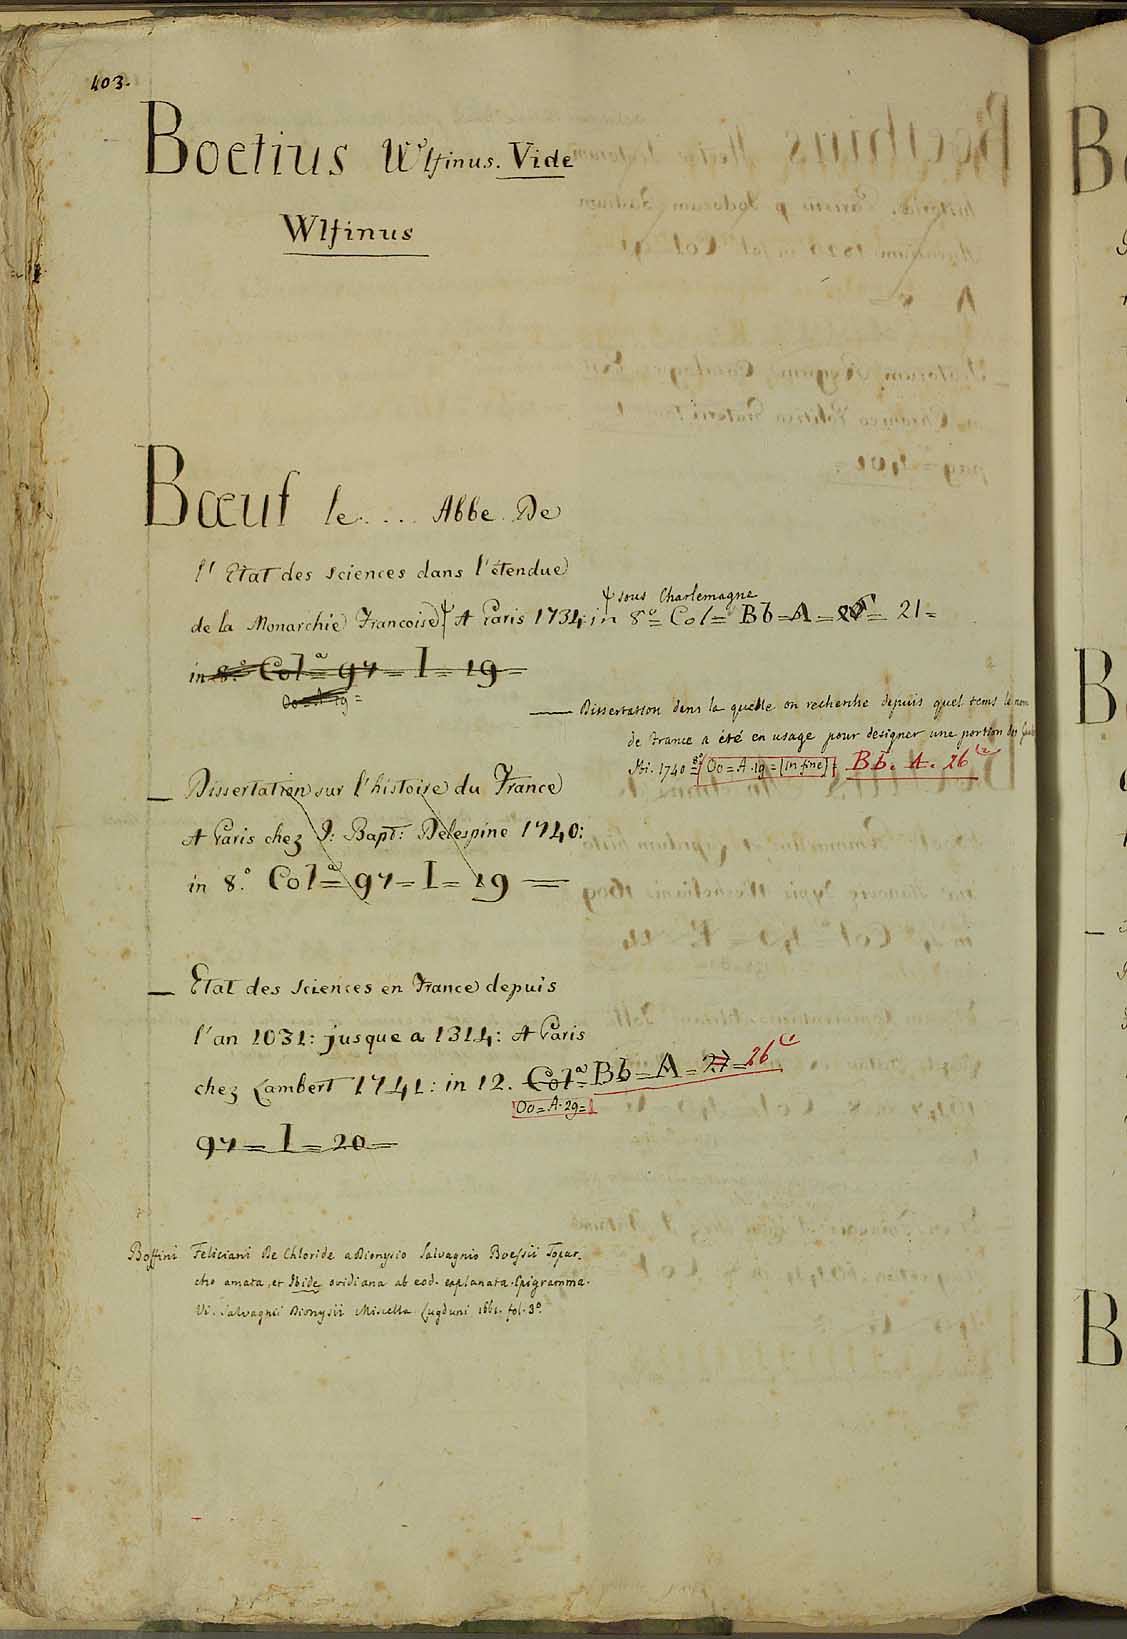 403.
Boetius Wlfinus. Vide
Wlfinus
Bœuf le.... Abbe De
l' Etat des sciences dans l'étendue
sous Charlemagne
de la Monarchie Francoise A Paris 1734: in 8.° Col= Bb=A= 21=
in 8.° Col.ª 97=I=19=
Oo=A=19=
Dissertation dans la quelle on recherche depuis quel tems le nom
de France a été en usage pour designer une portion des
Ibi. 1740 8° Oo=A.19=[in fine] Bb. A. 26
Dissertation sur l'histoire du France
A Paris chez J: Bapt: Delespine 1740:
in 8.° Col.ª 97=I=19=
Etat des sciences en France depuis
l'an 1031: jusque a 1314: A Paris
chez Lambert 1741: in 12. Col.ª Bb=A=27=26
Oo=A.29=
97=I=20=
Boffini Feliciani De Chloride a Dionysio Salvagnio Boessii Topar-
cho amata, et Ibide ovidiana ab eod. explanata Epigramma.
Vi. Salvagnii Dionysii Miscella Lugduni 1661. fol. 3°